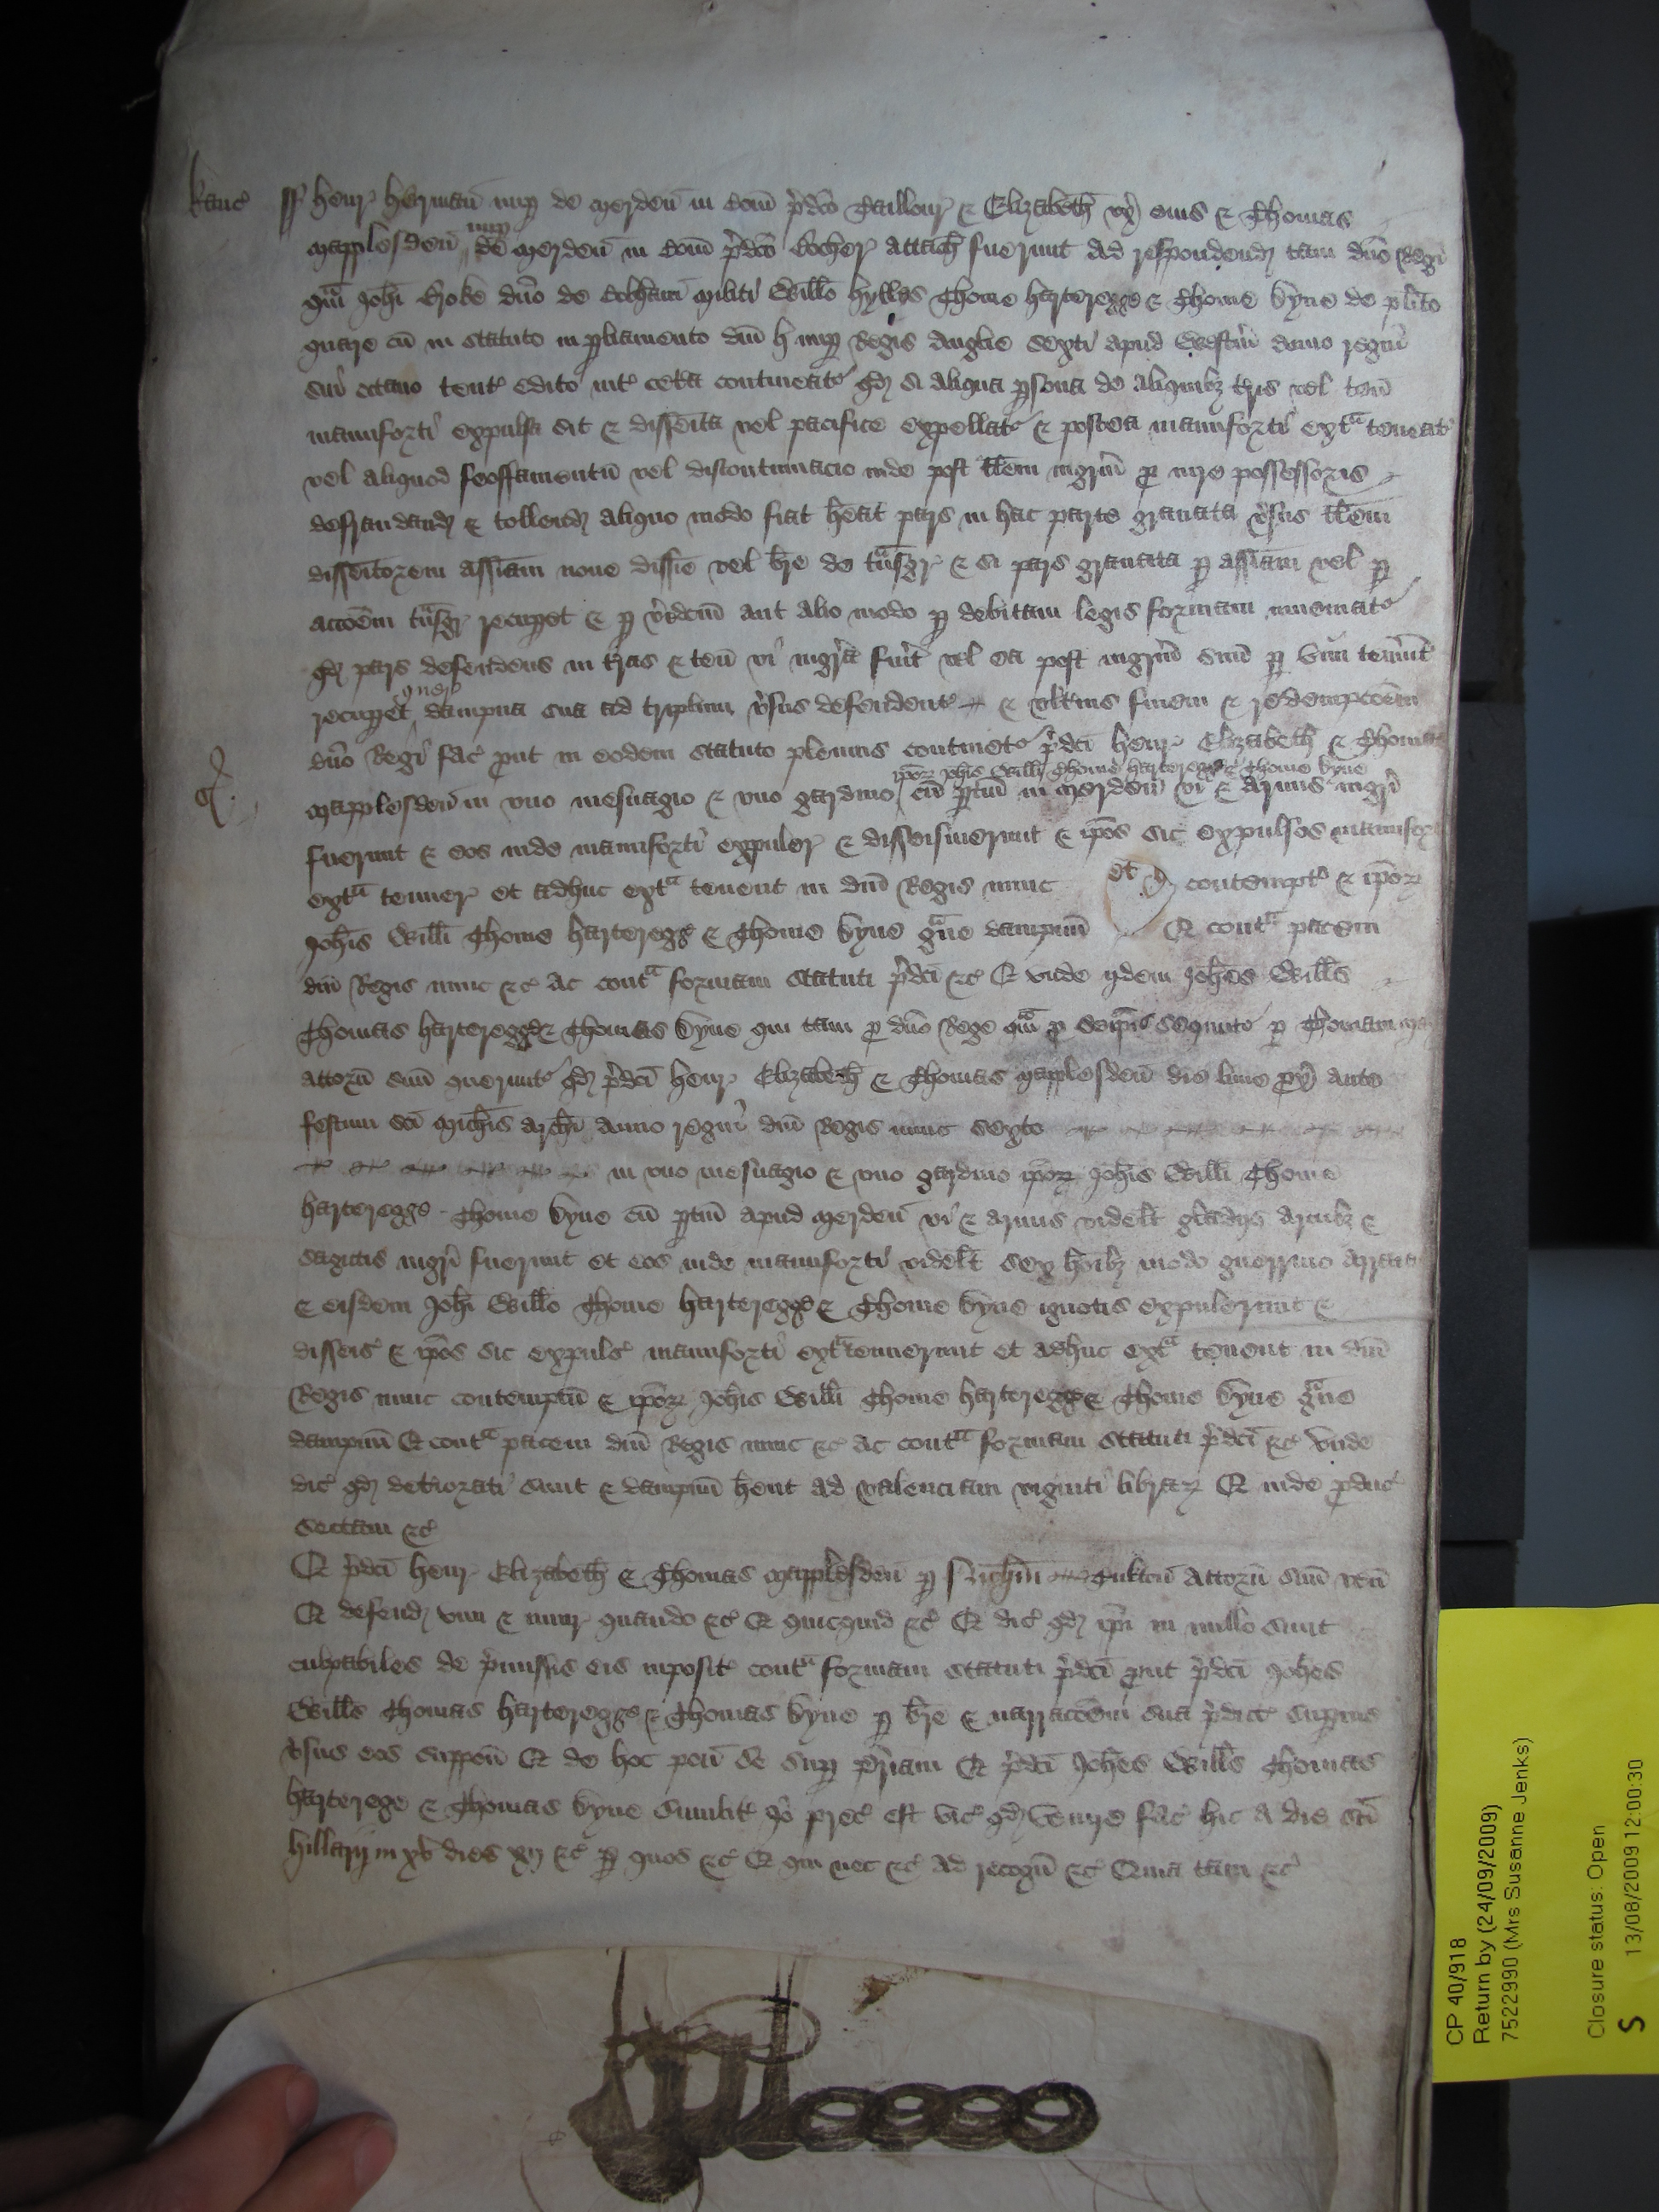 Kanc ss Henr Herman nup de Merden in Com p̄dco Taillour & Elizabeth ux eius & Thomas
nup
Mapplesden de Merden in Com p̄dco Bocher attach fuerunt ad respondend tam dno Regi
qm̄ Johi Broke dno de Cobham militi Willo Hylles Thome Harteregge & Thome Vyne de plito
quare cū in statuto in pliamento dni H nup Regis Anglie sexti apud Westm̄ anno regni
sui octavo tent edito int cet̄a contineat qd si aliqua psona de aliquibz tris vel ten̄
manuforti expulsa sit & disseita vel pacifice expellat & postea manuforti ext̄ teneat
vel aliquod feoffamentū vel discontinuacio inde post tlem ingm̄ p iure possessoris
defraudand & tollend aliquo modo fiat heat pars in hac parte gravata vsus tlem
disseitorem assiam nove dissie vel bre de tnsgr & si pars gravata p assiam vel p
accoēm tnsgr recupet & p vedcm̄ aut alio modo p debitam legis formam inveniat
qd pars defendens in tras & ten̄ vi ingra fuit vel ea post ingm̄ suū p vim tenuit
quer
recupet dampna sua ad triplum vsus defendent & ultius finem & redempcoēm
dno Regi fac put in eodem statuto plenius continet p̄dci Henr Elizabeth & Thomas
ipor Johis Willi Thome Harteregge & Thome Vyne
Mapplesden in uno mesuagio & uno gardino cū ptin̄ in Merden vi & armis ingri
fuerunt & eos inde manuforti expuler & disseisiverunt & ipos sic expulsos manufor
ext̄ tenuer et adhuc ext̄ tenent in dni Regis nunc contempt & ipor
Johis Willi Thome Hartaregg & Thome Vyne gve dampnū Et cont̄ pacem
dni Regis nunc &c ac cont̄ formam statuti p̄dci &c Et unde ijdem Johes Wills
Thomas Hartaregge & Thomas Vyne qui tam p dno Rege qm̄ p seipis sequnt p Thomam
attorn̄ suū querunt qd p̄dci Henr Elizabeth & Thomas Mapplesden die lune px ante
festum sci Michis archi anno regni dni Regis nunc sexto
in uno mesuagio & uno gardino ipor Johis Willi Thome
Hartaregge Thome Vyne cū ptin̄ apud Merden vi & armis videlt gladijs arcubz &
sagittis ingri fuerunt et eos inde manuforti videlt sex hoibz modo guerrino arraiat
& eisdem Johi Willo Thome Hartaregge & Thome Vyne ignotis expulerunt &
disseis & ipos sic expuls manuforti ext̄ tenuerunt et adhuc ext̄ tenent in dni
Regis nunc contemptū & ipor Johis Willi Thome Hartaregge & Thome Vyne gve
dampnū Et cont̄ pacem dni Regis nunc &c ac cont̄ formam statuti p̄dci &c Unde
dic qd detiorati sunt & dampnū hent ad valenciam viginti librar Et inde pduc
sectam &c
Et p̄dci Henr Elizabeth & Thomas Mapplesden p attorn̄ suū ven̄
Et defend vim & iniur quando &c Et quicquid &c Et dic qd ipi in nullo sunt
culpabiles de p̄missis eis imposit cont̄ formam statuti p̄dci put p̄dci Johes
Wills Thomas Hartaregge & Thomas Vyne p bre & narracoēm sua p̄dict supius
vsus eos suppon̄ Et de hoc pon̄ se sup priam Et p̄dci Johes Wills Thomas
Harterege & Thomas Vyne similit Io prec est vic qd venire fac hic a die sci
Hillarij in xv dies xij &c p quos &c Et qui nec &c ad recogn̄ &c Quia tam &c
CP 40/918
Return by (24/09/2009)
7522990 (Mrs Susanne Jenks)
Closure status: Open
S 13/08/2009 12:00:30